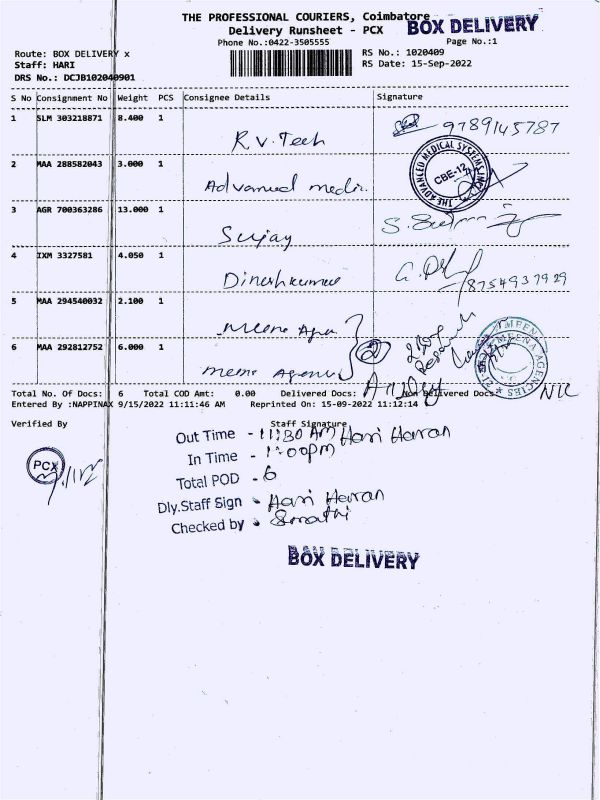 THE PROFESSIONAL COURIERS, Coimbatore
BOX DELIVERY
Delivery Runsheet - PCX
Phone No.:0422-3505555
Page No.:1
Route: BOX DELIVERY x
RS No.: 1020409
Staff: HARI
RS Date: 15-Sep-2022
DRS No.: DCJB102040901
S No Consignment No Weight PCS Consignee Details Signature
1 SLM 303218871 8.400 1 R.V. Tech 9789145787
2 MAA 288582043 3.000 1 Advanced medic. THE ADVANCED MEDICAL SYSTEMS INC. CBE-12
3 AGR 700363286 13.000 1 Sujay
4 IXM 3327581 4.050 1 Dineshkumar 8754937929
5 MAA 294540032 2.100 1 Meena Agen
6 MAA 292812752 6.000 1 Meena Agencies 2 MEENA AGENCIES
Total No. Of Docs: 6 Total COD Amt: 0.00 Delivered Docs: Non Delivered Docs: Nil
Entered By :NAPPINAX 9/15/2022 11:11:46 AM Reprinted On: 15-09-2022 11:12:14
Verified By Staff Signature
PCX
Out Time - 11:30 AM Hari Haran
In Time - 1:00pm
Total POD - 6
Dly.Staff Sign - Hari Haran
Checked by -
BOX DELIVERY